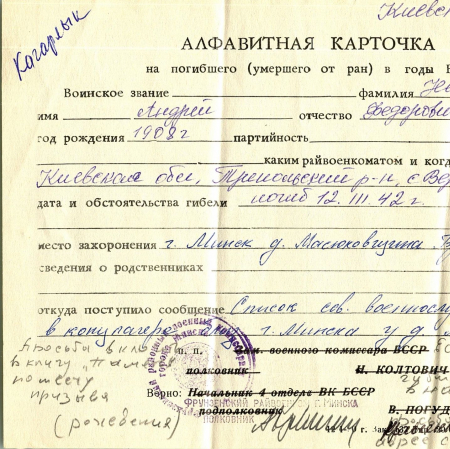 Киевск
Кагарлык
АЛФАВИТНАЯ КАРТОЧКА
на погибшего (умершего от ран) в годы В
Воинское звание фамилия
имя Андрей отчество Федорови
год рождения 1908г партийность
каким райвоенкоматом и когд
Киевская обл, Трепольский р-н, с Вер
дата и обстоятельства гибели погиб 12.III.42г.
место захоронения г. Минск д. Масюковщина.
сведения о родственниках
откуда поступило сообщение Список сов. военносл
в концлагере г. Минска у д.
Просьба включ
п. п. Зам. военного комиссара БССР
в книгу "Памя
полковник Н. КОЛТОВИЧ
по месту
Верно: Начальник 4 отделе ВК БССР
призыва
ФРУНЗЕНСКИЙ РАЙВОЕНКОМ Г. МИНСКА
подполковник В. ПОГУД
ПОЛКОВНИК
(рождения)